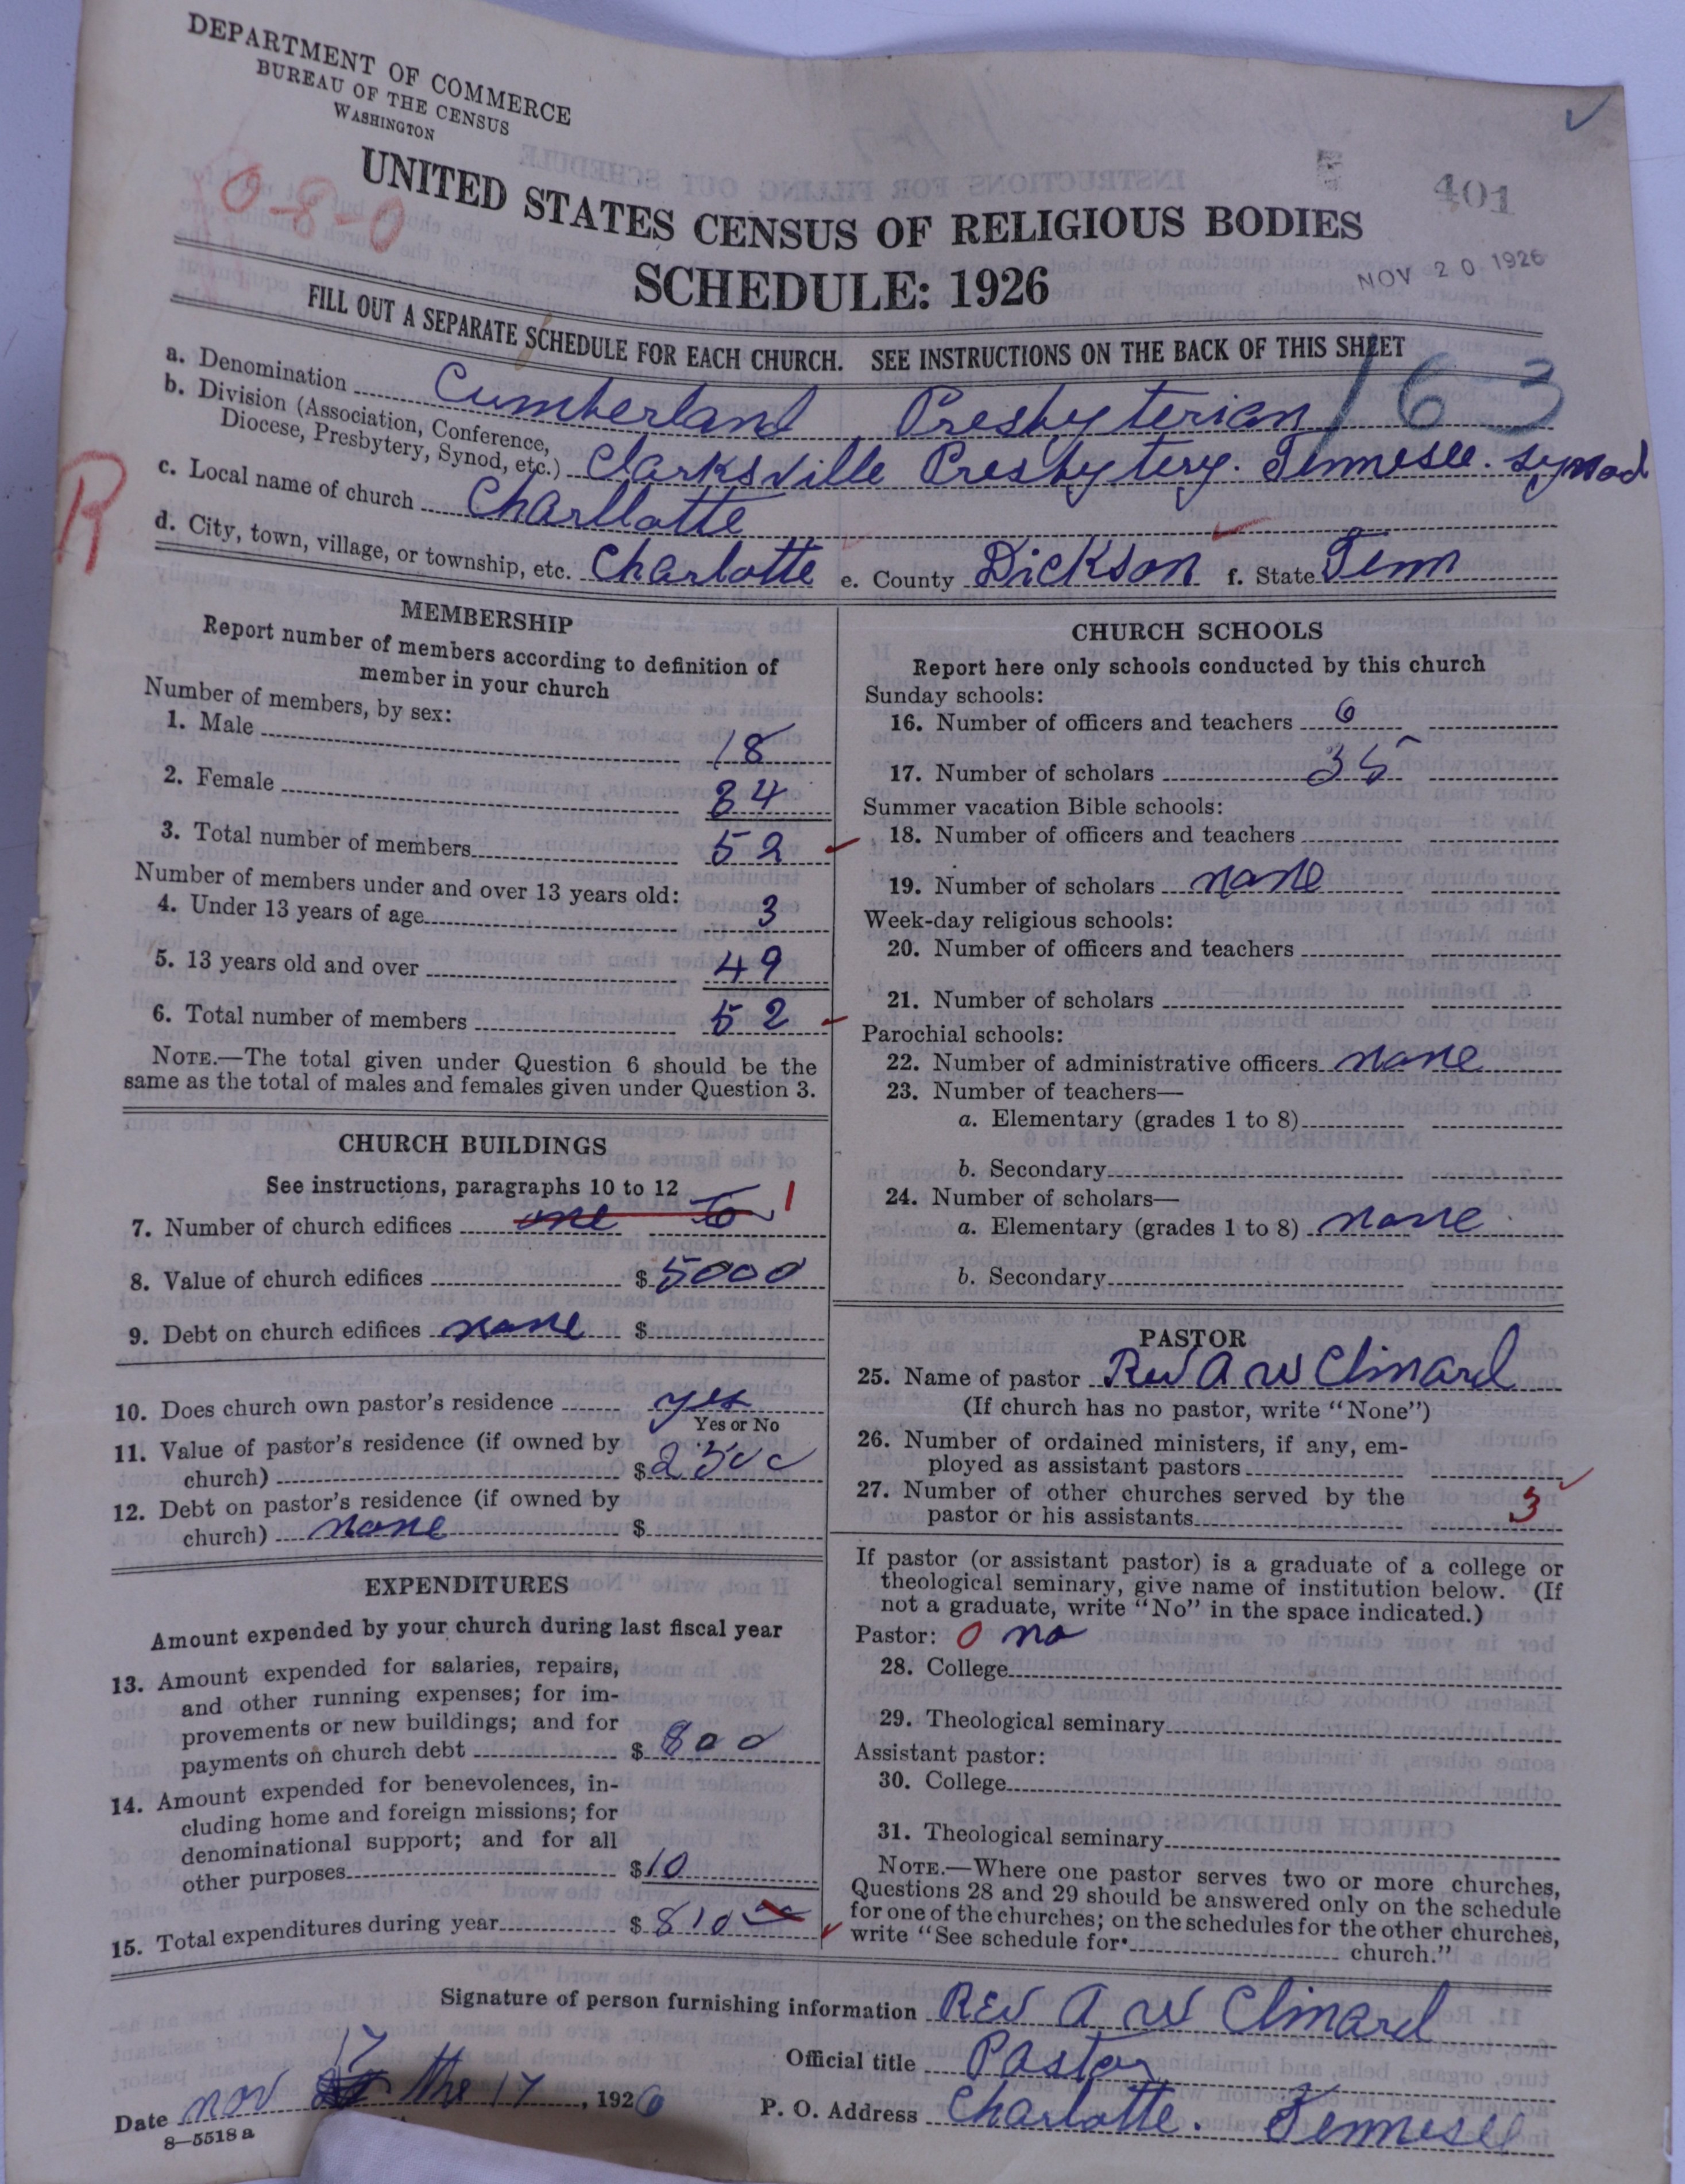 DEPARTMENT OF COMMERCE
BUREAU OF THE CENSUS
WASHINGTON
0-8-0
401
UNITED STATES CENSUS OF RELIGIOUS BODIES
NOV 20 1926
SCHEDULE: 1926
FILL OUT A SEPARATE SCHEDULE FOR EACH CHURCH. SEE INSTRUCTIONS ON THE BACK OF THIS SHEET
163
a. Denomination Cumberland Presbyterian
b. Division (Association, Conference,
Diocese, Presbytery, Synod, etc.) Clarksville Presbytery. Tennesee. synod
R
c. Local name of church Charllotte
d. City, town, village, or township, etc. Charlotte e. County Dickson f. State Tenn
MEMBERSHIP
Report number of members according to definition of
member in your church
Number of members, by sex:
1. Male 18
2. Female 34
3. Total number of members 52
Number of members under and over 13 years old:
4. Under 13 years of age 3
5. 13 years old and over 49
6. Total number of members 52
NOTE.—The total given under Question 6 should be the
same as the total of males and females given under Question 3.
CHURCH BUILDINGS
See instructions, paragraphs 10 to 12
7. Number of church edifices one 1
8. Value of church edifices $ 5000
9. Debt on church edifices none $
10. Does church own pastor's residence yes
Yes or No
11. Value of pastor's residence (if owned by
church) $ 2500
12. Debt on pastor's residence (if owned by
church) none $
EXPENDITURES
Amount expended by your church during last fiscal year
13. Amount expended for salaries, repairs,
and other running expenses; for im-
provements or new buildings; and for
payments on church debt $ 800
14. Amount expended for benevolences, in-
cluding home and foreign missions; for
denominational support; and for all
other purposes $ 10
15. Total expenditures during year $ 810
CHURCH SCHOOLS
Report here only schools conducted by this church
Sunday schools:
16. Number of officers and teachers 6
17. Number of scholars 35
Summer vacation Bible schools:
18. Number of officers and teachers
19. Number of scholars none
Week-day religious schools:
20. Number of officers and teachers
21. Number of scholars
Parochial schools:
22. Number of administrative officers none
23. Number of teachers—
a. Elementary (grades 1 to 8)
b. Secondary
24. Number of scholars—
a. Elementary (grades 1 to 8) none
b. Secondary
PASTOR
25. Name of pastor Rev A W Clinard
(If church has no pastor, write "None")
26. Number of ordained ministers, if any, em-
ployed as assistant pastors
27. Number of other churches served by the
pastor or his assistants 3
If pastor (or assistant pastor) is a graduate of a college or
theological seminary, give name of institution below. (If
not a graduate, write "No" in the space indicated.)
Pastor: 0 no
28. College
29. Theological seminary
Assistant pastor:
30. College
31. Theological seminary
NOTE.—Where one pastor serves two or more churches,
Questions 28 and 29 should be answered only on the schedule
for one of the churches; on the schedules for the other churches,
write "See schedule for church."
Signature of person furnishing information Rev A W Clinard
Official title Pastor
17
Date nov the 17, 1926 P. O. Address Charlotte. Tennesee
8—5518 a